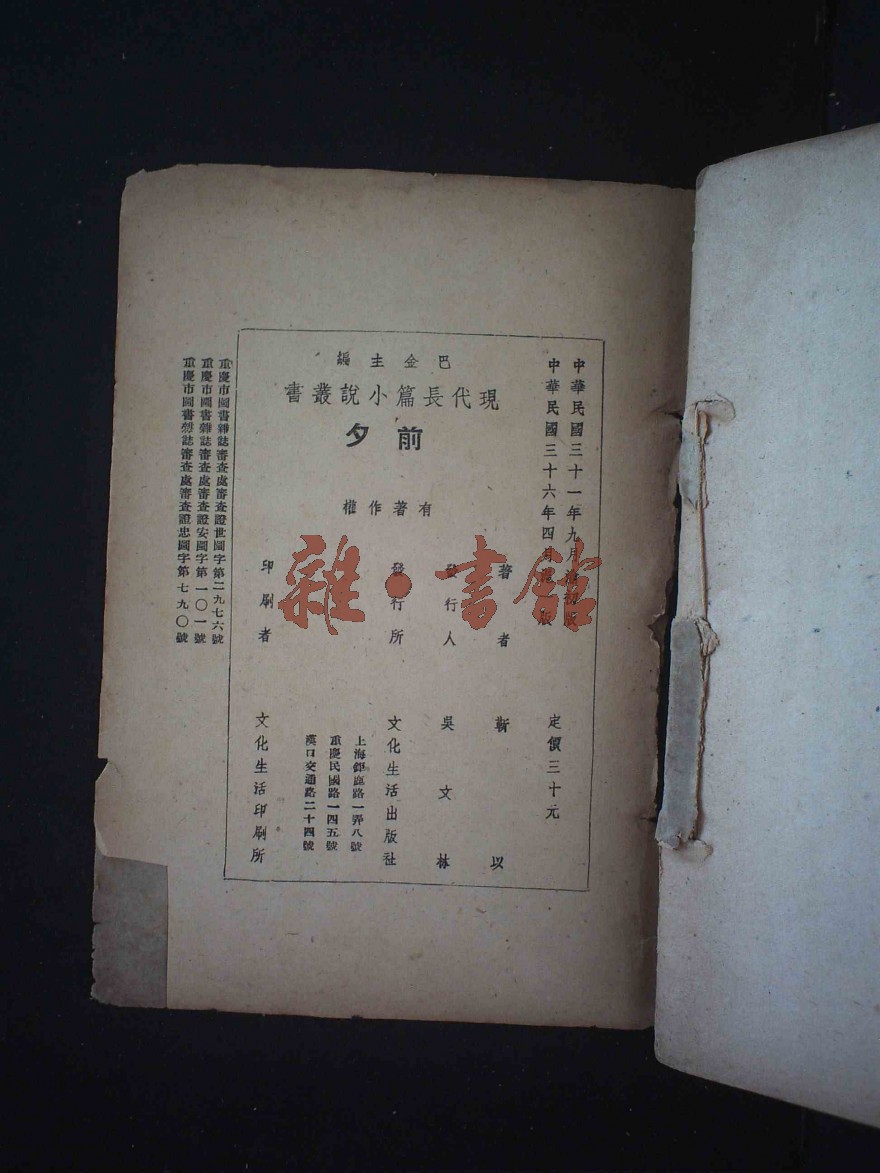 中華民國三十一年九月渝初版
中華民國三十六年四月 版
定價三十元
巴金主編
現代長篇小說叢書
前夕
有著作權
著者 靳以
發行人 吳文林
發行所 文化生活出版社
上海鉅鹿路一弄八號
重慶民國路一四五號
漢口交通路二十四號
印刷者 文化生活印刷所
重慶市圖書雜誌審查處審查證世圖字第二九七六號
重慶市圖書雜誌審查處審查證安圖字第一〇一號
重慶市圖書雜誌審查處審查證忠圖字第七九〇號
雜·書館